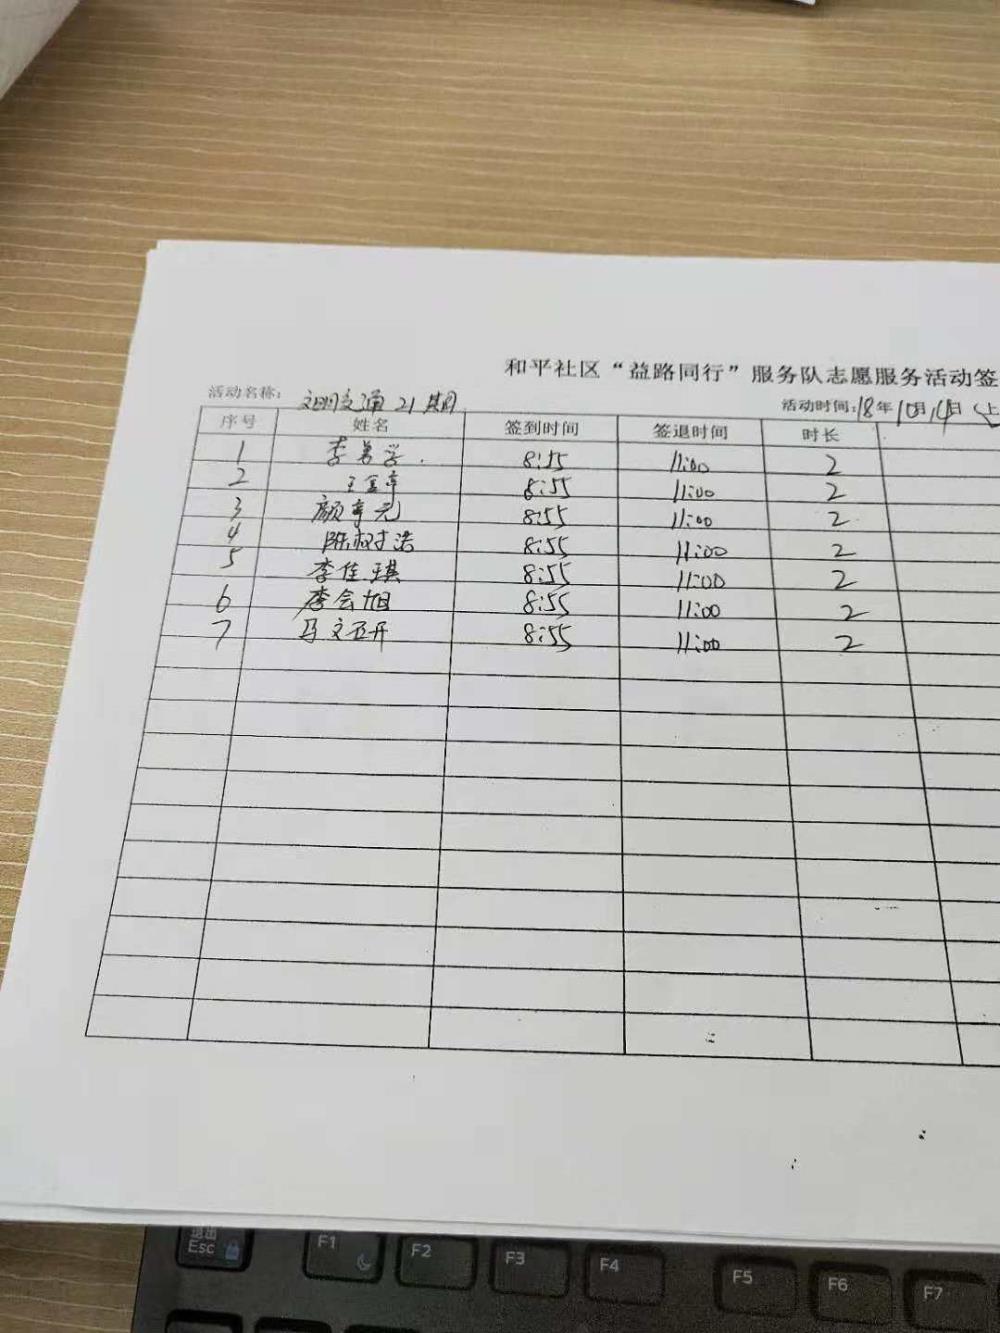 和平社区“益路同行”服务队志愿服务活动签
活动名称: 文明交通21期 活动时间:18年10月14日(上
序号 姓名 签到时间 签退时间 时长
1 李 学 8:55 11:00 2
2 王 8:55 11:00 2
3 颜 元 8:55 11:00 2
4 陈树浩 8:55 11:00 2
5 李佳琪 8:55 11:00 2
6 李会旭 8:55 11:00 2
7 马文 开 8:55 11:00 2
退出
Esc F1 F2 F3 F4 F5 F6 F7